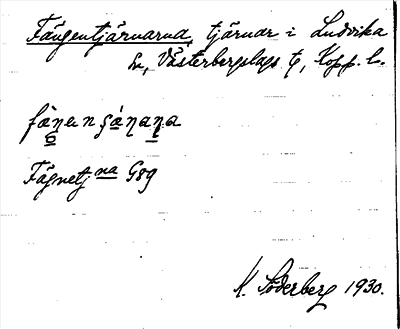 Fängentjärnarna, tjärnar i Ludvika
sn, Västerbergslags tg, Kopp. l.
Fägnetj na G89
K. Söderberg 1930.